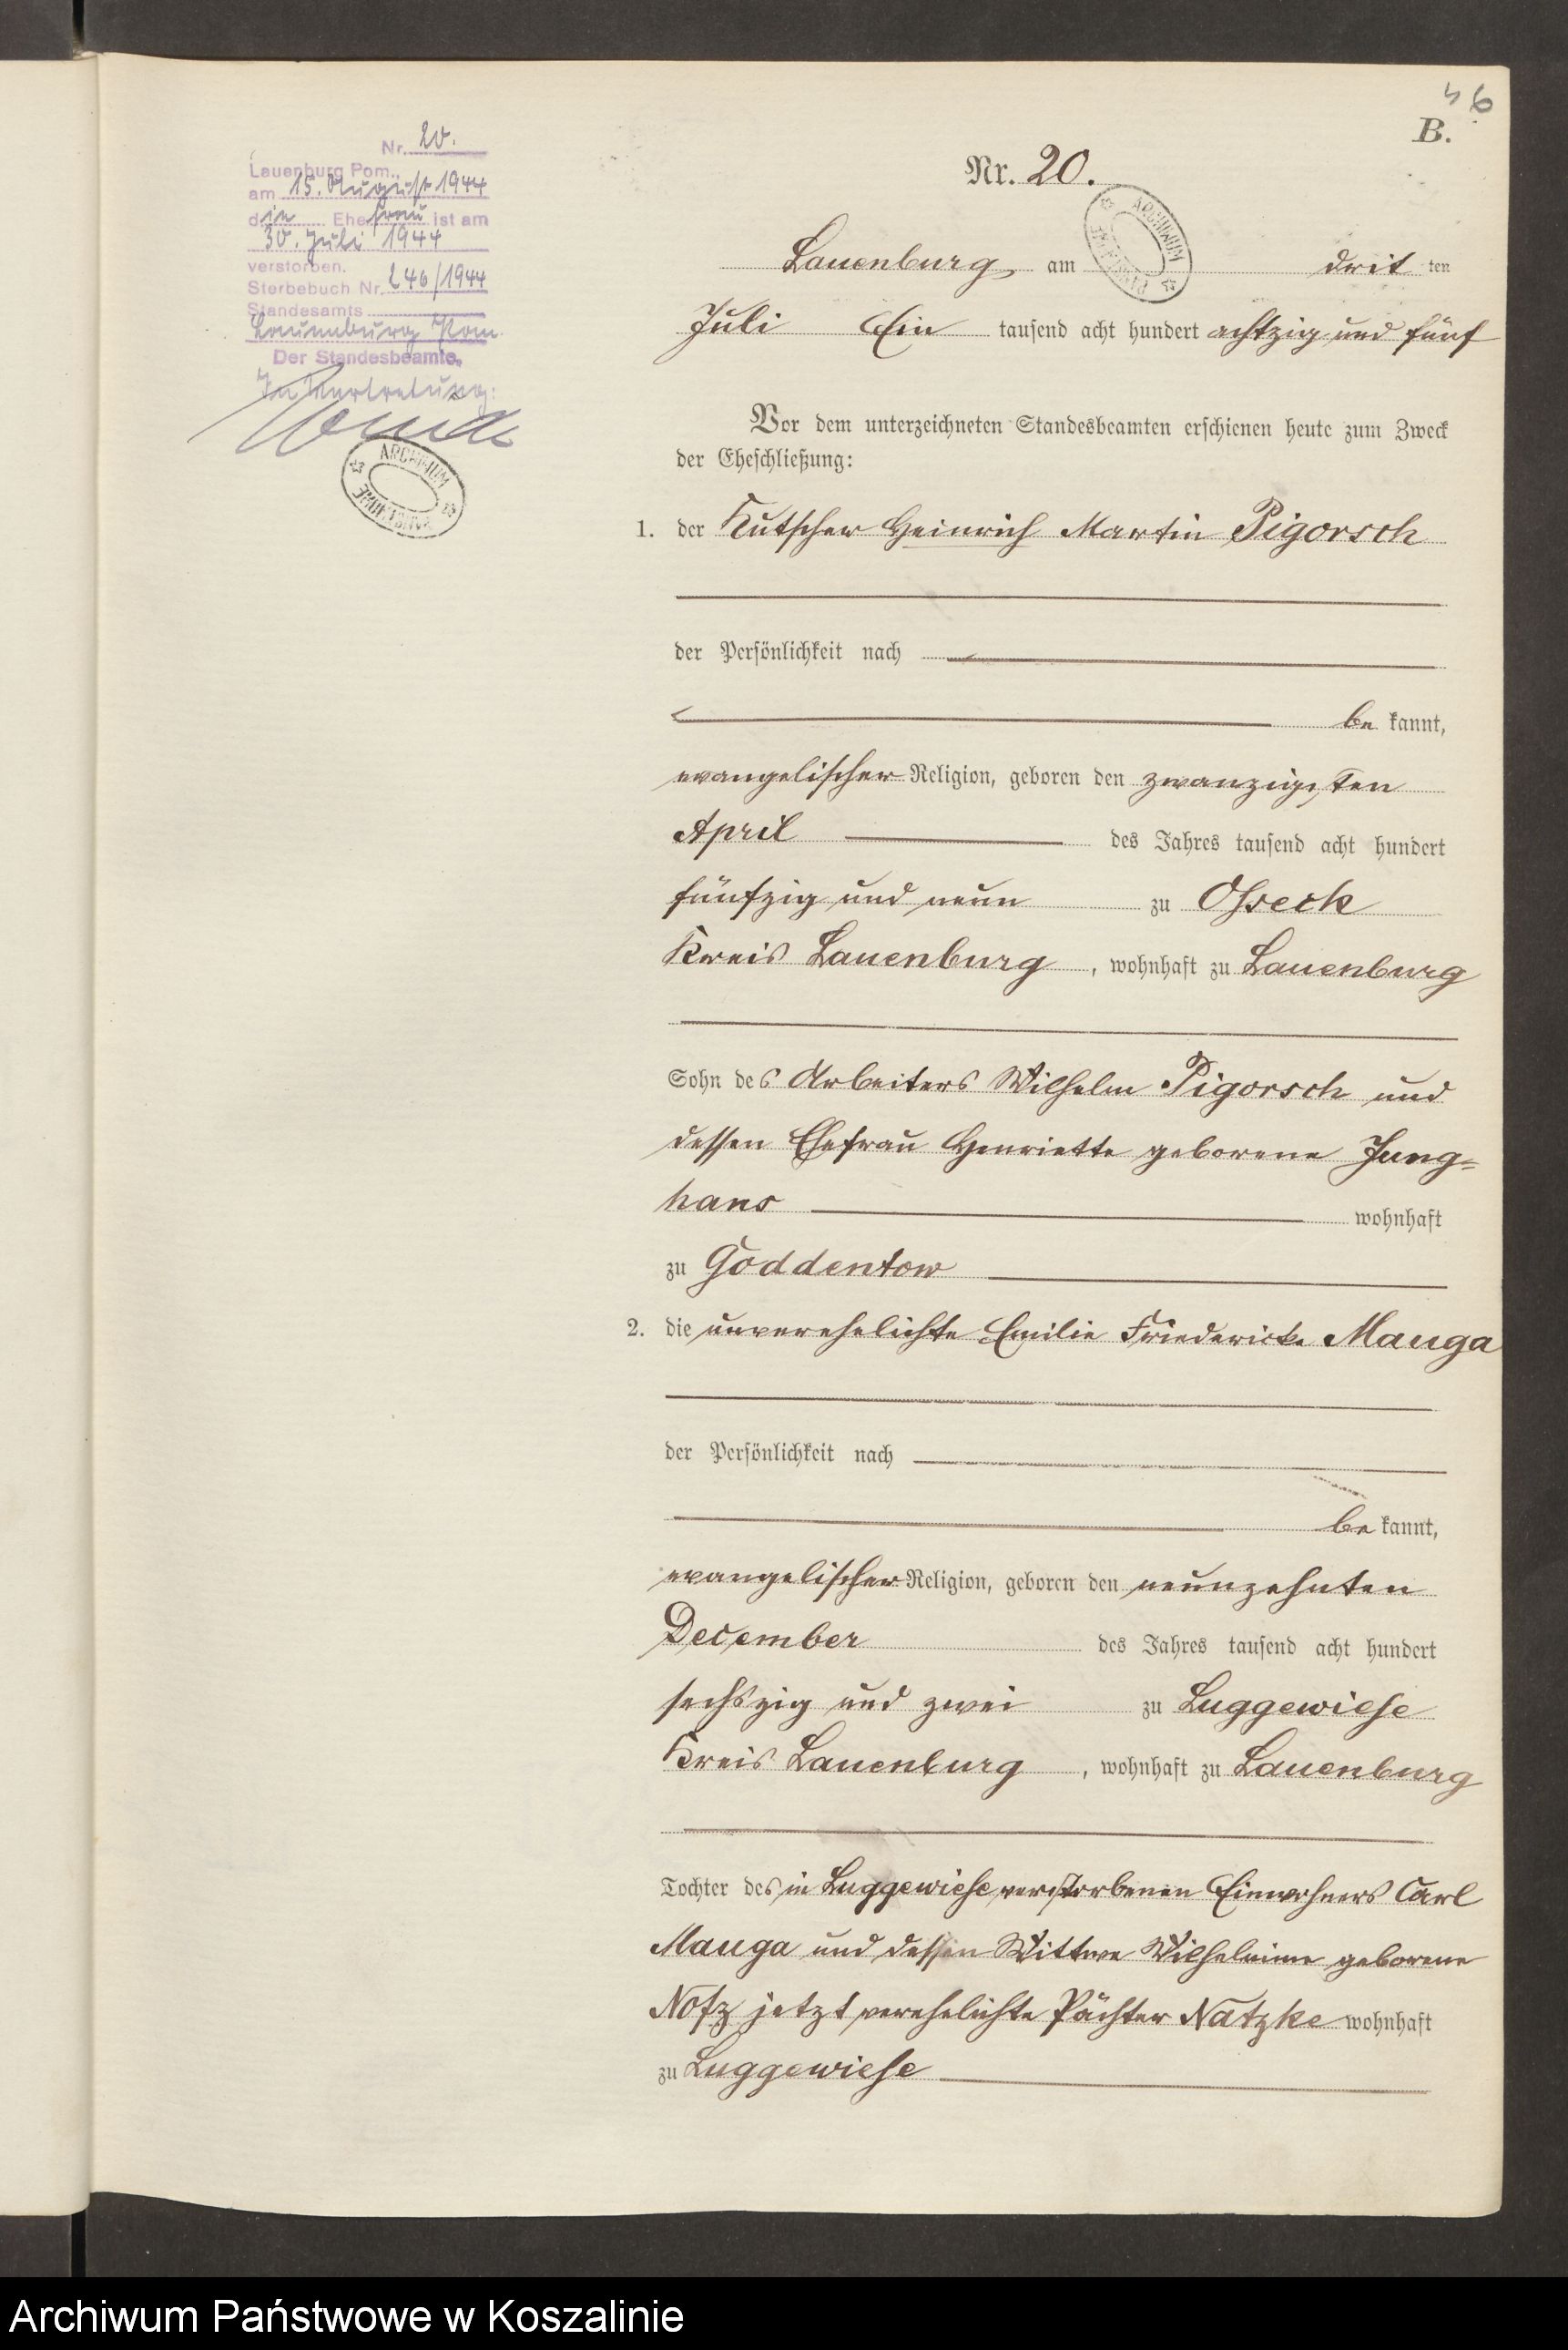 46
B.
Nr. 20.
Nr. 20.
Lauenburg Pom.,
am 15. August 1944
die Ehefrau ist am
30. Juli 1944
verstorben.
Sterbebuch Nr. 246/1944
Standesamts
Lauenburg Pom.
Der Standesbeamte.
In Vertretung:
ARCHIWUM
PAŃSTWOWE
ARCHIWUM
PAŃSTWOWE
Lauenburg, am drit ten
Juli Ein tausend acht hundert achtzig und fünf
Vor dem unterzeichneten Standesbeamten erschienen heute zum Zweck
der Eheschließung:
1. der Kutscher Heinrich Martin Pigorsch
der Persönlichkeit nach
be kannt,
evangelischer Religion, geboren den zwanzigsten
April des Jahres tausend acht hundert
fünfzig und neun zu Osseck
Kreis Lauenburg, wohnhaft zu Lauenburg
Sohn des Arbeiters Wilhelm Pigorsch und
dessen Ehefrau Henriette geborene Jung-
hans wohnhaft
zu Goddentow
2. die unverehelichte Emilie Friedericke Mauga
der Persönlichkeit nach
be kannt,
evangelischer Religion, geboren den neunzehnten
December des Jahres tausend acht hundert
sechszig und zwei zu Luggewiese
Kreis Lauenburg, wohnhaft zu Lauenburg
Tochter des in Luggewiese verstorbenen Einwohners Carl
Mauga und dessen Wittwe Wilhelmine geborene
Notz jetzt verehelichte Pächter Natzke wohnhaft
zu Luggewiese
Archiwum Państwowe w Koszalinie